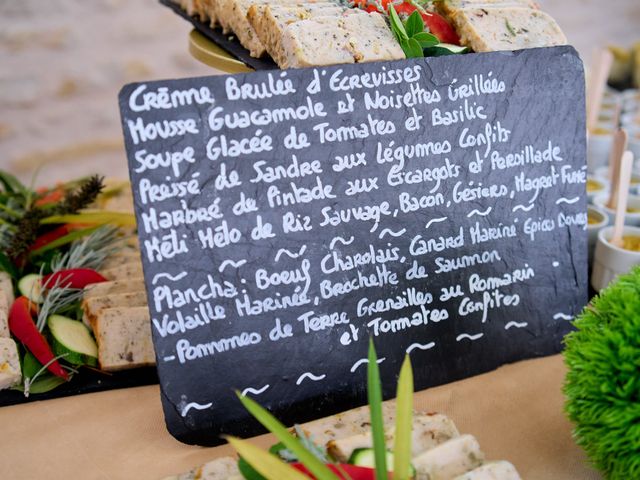 Crème Brulée d'Ecrevisses
Mousse Guacamole et Noisettes Grillées
Soupe Glacée de Tomates et Basilic
Pressé de Sandre aux Légumes Confits
Marbré de Pintade aux Escargots et Persillade
Méli Mélo de Riz Sauvage, Bacon, Gésiers, Magret Fumé
~ ~ ~ ~ ~ ~ ~ ~ ~
Plancha: Boeuf Charolais, Canard Mariné Epices Douces,
Volaille Marinée, Brochette de Saumon
- Pommes de Terre Grenailles au Romarin -
et Tomates Confites
~ ~ ~ ~ ~ ~ ~ ~